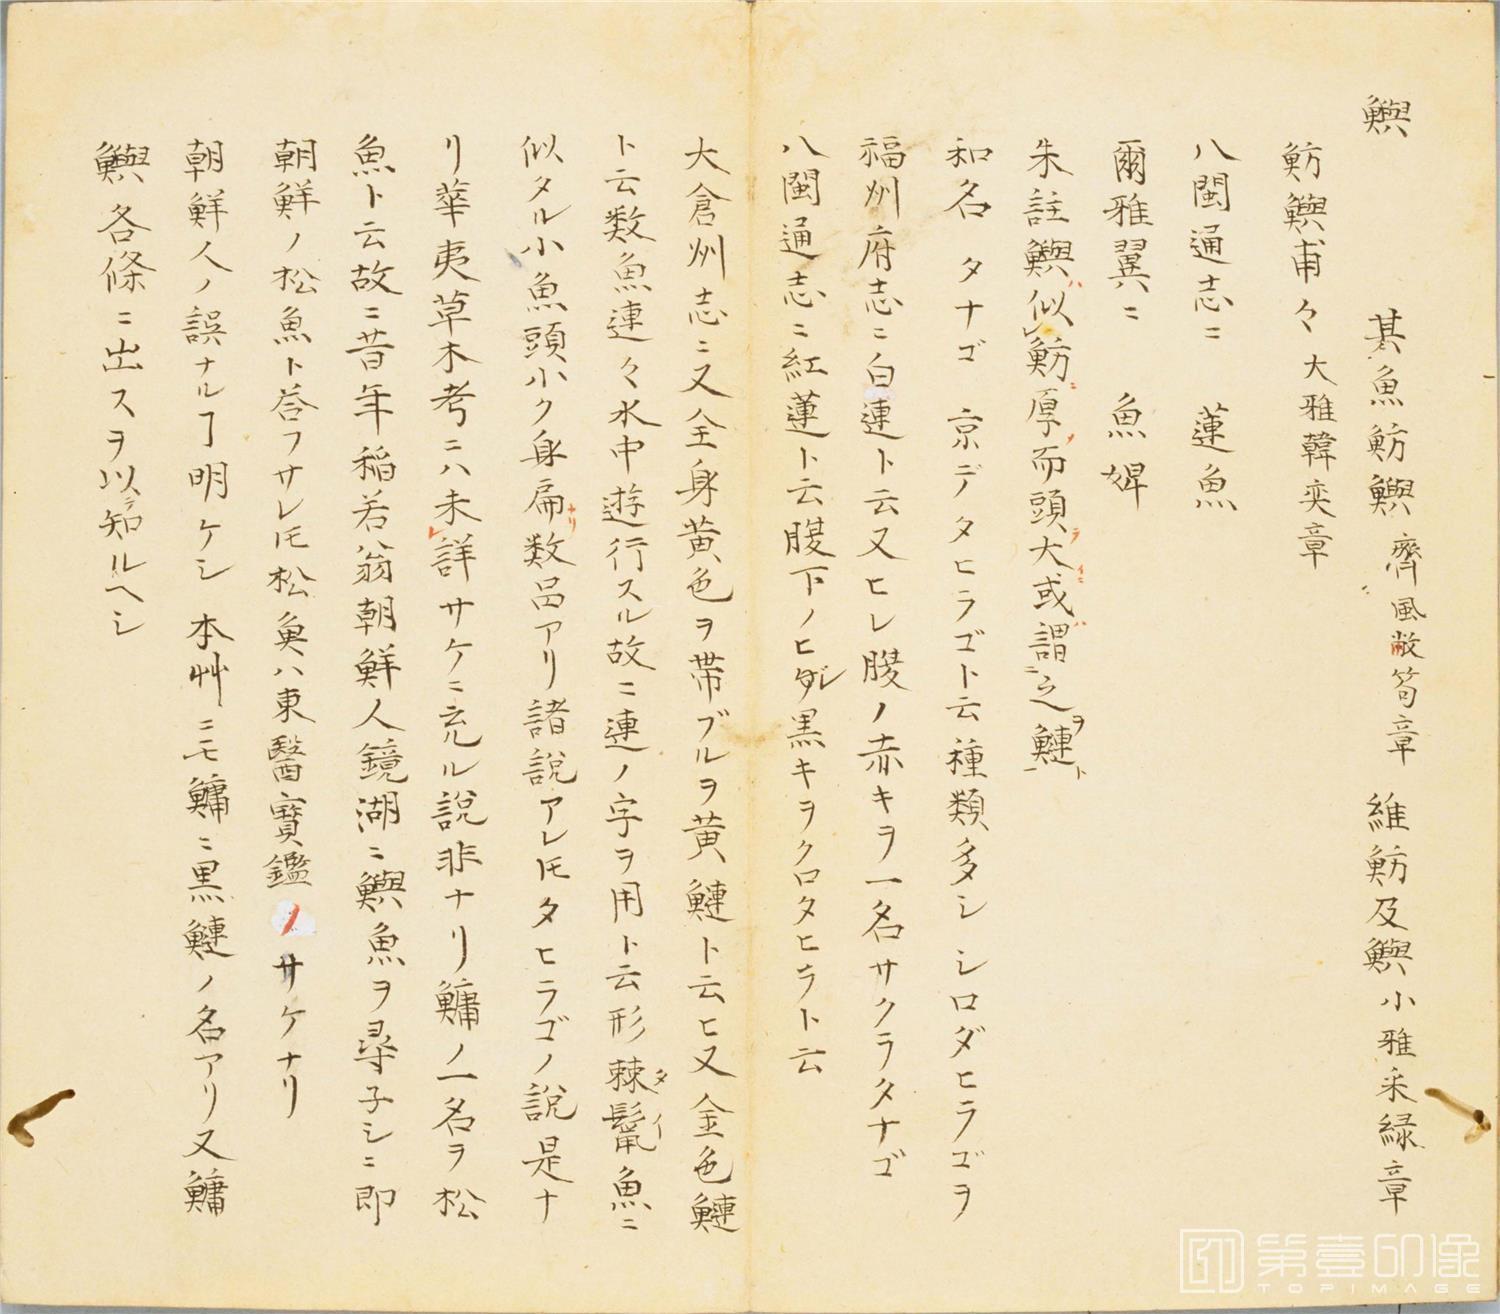 鱮　其魚魴鱮 齊風敝笱章　維魴及鱮 小雅采緑章
魴鱮甫々 大雅韓奕章
八閩通志ニ　蓮魚
爾雅翼ニ　魚婢
朱註鱮ハ似レ魴ニ厚メ而頭ラ大イニ或ハ謂ニ之ヲ鰱ト一
和名 タナゴ 京デタヒラゴト云種類多シシロダヒラゴヲ
福州府志ニ白連ト云又ヒレ腹ノ赤キヲ一名サクラタナゴ
八閩通志ニ紅蓮ト云腹下ノヒダレ黒キヲクロタヒラト云
大倉州志ニ又全身黄色ヲ帯ブルヲ黄鰱ト云ヒ又金色鰱
ト云数魚連々水中遊行スル故ニ連ノ字ヲ用ト云形棘鬣魚タイニ
似タル小魚頭小ク身扁ナリ数品アリ諸說アレ𪜈タヒラゴノ說是ナ
リ華夷草木考ニハ未レ詳サケニ充ル說非ナリ鱅ノ一名ヲ松
魚ト云故ニ昔年稲若翁朝鮮人鏡湖ニ鱮魚ヲ尋子シニ即
朝鮮ノ松魚ト荅フサレ𪜈松魚ハ東醫寳鑑ノサケナリ
朝鮮人ノ誤ナルヿ明ケシ 本艸ニモ鱅ニ黒鰱ノ名アリ又鱅
鱮各條ニ出スヲ以テ知ルヘシ
第壹印像
TOPIMAGE